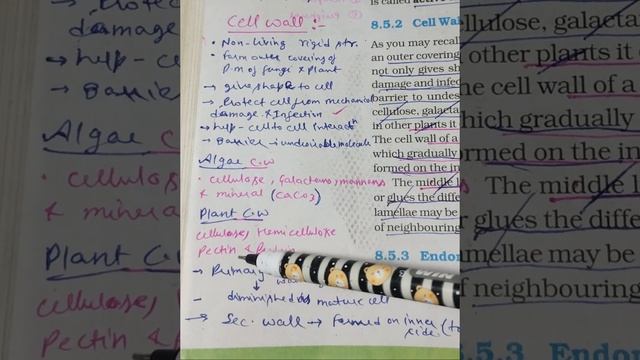 Cell wall :-
• Non-living rigid str.
• form outer covering of
P.m of fungi & plant
→ give shape to cell
→ Protect cell from mechanical
damage & Infection ✓
→ help - cell to cell interactn
→ Barrier - undesirable molecule
Algae C.W
• cellulose, galactans, mannans
& mineral (CaCO3)
Plant C.W
cellulose, Hemicellulose
Pectin &
→ Primary
↓
– diminished mature cell
→ Sec. wall → formed on inner
side
is called
8.5.2 Cell Wal
As you may recall
an outer covering
not only gives sh
damage and infec
barrier to undes
cellulose, galacta
in other plants it
The cell wall of a
which gradually
formed on the in
The middle l
or glues the diffe
lamellae may be
of neighbouring
8.5.3 Endo
damage
→ help - c
→ Barrie
Algae C
• cellulo
& minera
Plant C.
cellulose,
Pectin &
llulose, galacta
other plants it
he cell wall of a
hich gradually
rmed on the in
The middle l
glues the diffe
mellae may be
f neighbouring
.5.3 Endo